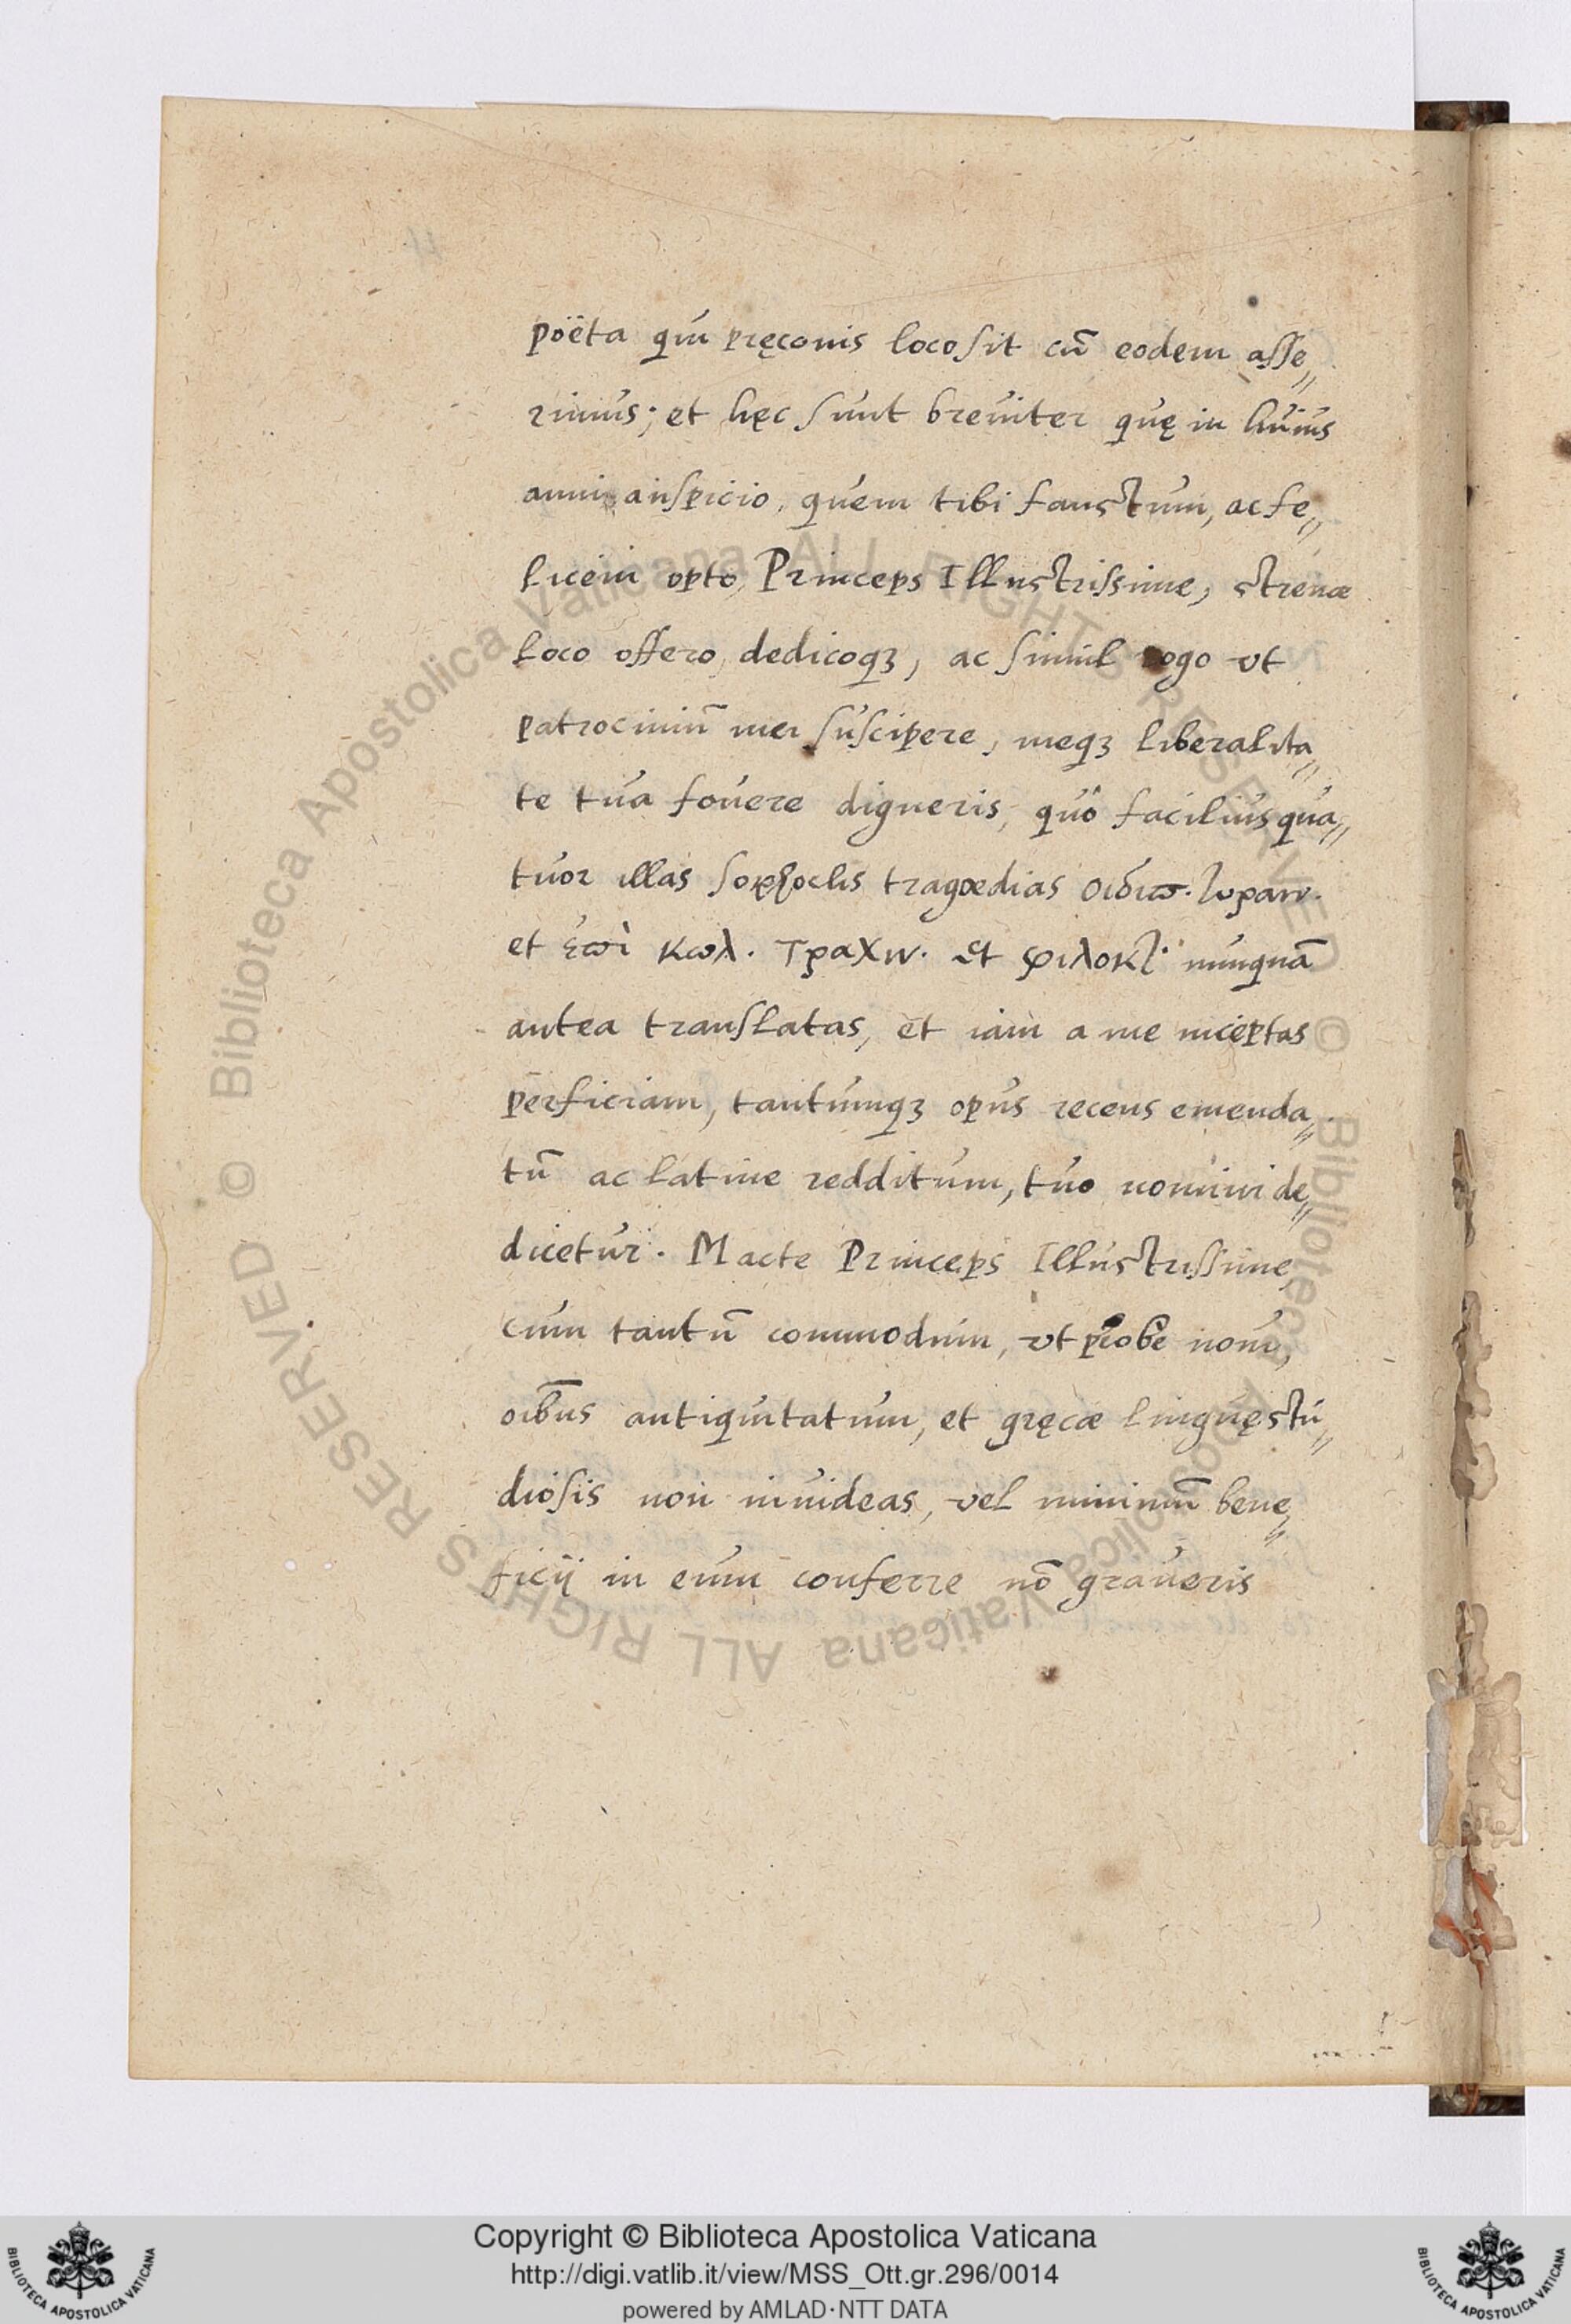 poëta qui pręconis loco sit cū eodem asse⸗
rimus; et hęc sunt breuiter quę in huius
anni auspicio, quem tibi faustum, ac fe⸗
licem opto, Princeps Illustrissime, strenæ
loco offero, dedicoqꝫ, ac simul rogo vt
patrociniū mei suscipere, meqꝫ liberalita⸗
te tua fouere digneris, quô facilius qua⸗
tuor illas sophoclis tragœdias οιδιπ. τυραν.
et ἐπὶ κωλ. τραχιν. et φιλοκτ. nunquā
antea translatas, et iam a me inceptas
perficiam, tantumqꝫ opus recens emenda⸗
tū ac latine redditum, tuo nomini de⸗
dicetur. Macte Princeps Illustrissime,
cum tantū commodum, vt probe noui,
oībus antiquitatum, et gręcæ linguę stu⸗
diosis non inuideas, vel minimū bene⸗
ficij in eum conferre nō graueris
Copyright © Biblioteca Apostolica Vaticana
http://digi.vatlib.it/view/MSS_Ott.gr.296/0014
powered by AMLAD·NTT DATA
BIBLIOTECA APOSTOLICA VATICANA
BIBLIOTECA APOSTOLICA VATICANA
© Biblioteca Apostolica Vaticana ALL RIGHTS RESERVED © Biblioteca Apostolica Vaticana ALL RIGHTS RESERVED